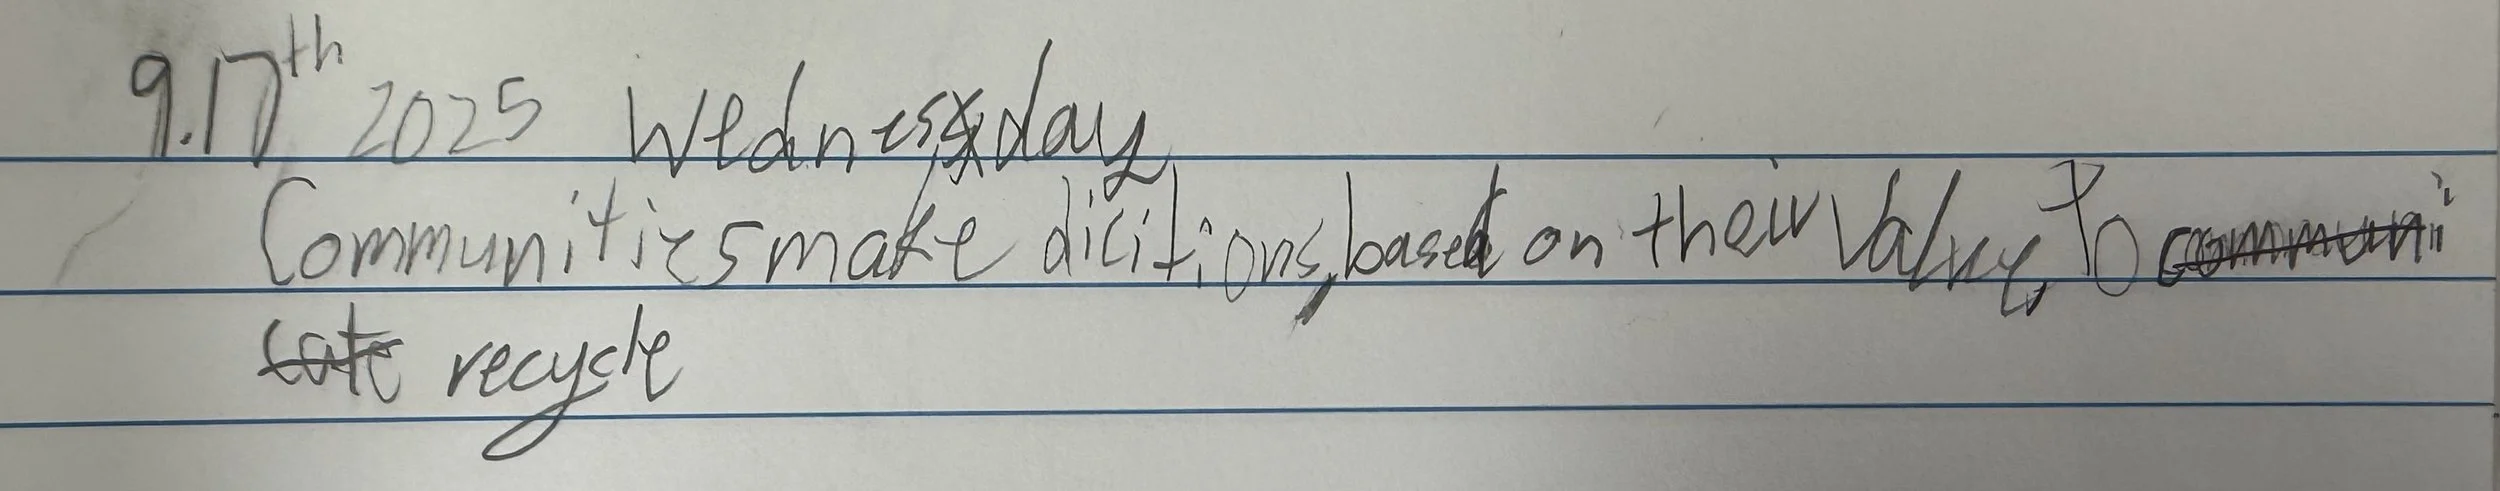 9.17th 2025 Wednesday
Communities make dicitions, based on their Value, To communi
cate recycle